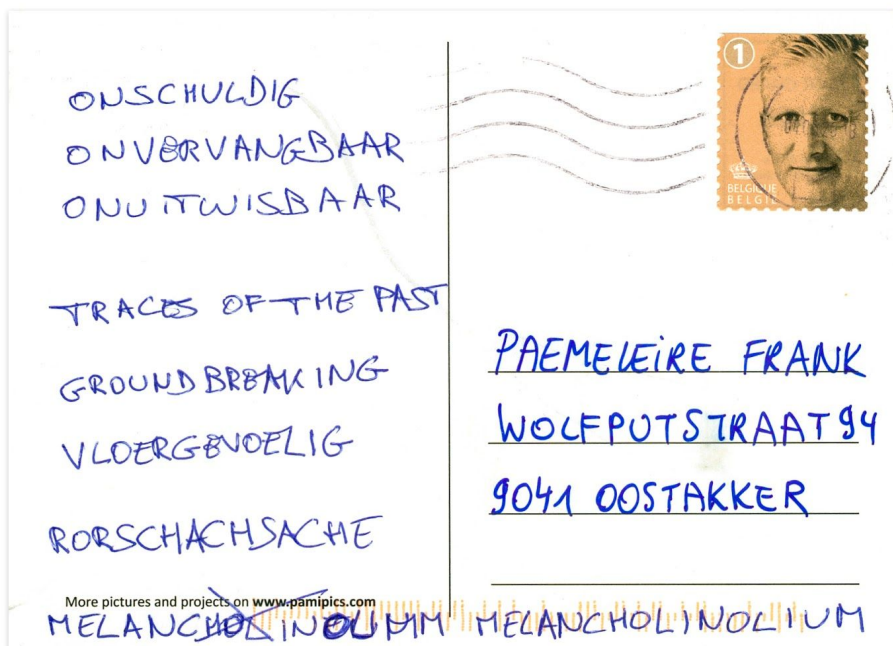 ONSCHULDIG
ONVERVANGBAAR
ONUITWISBAAR
TRACES OF THE PAST
GROUNDBREAKING
VLOERGEVOELIG
RORSCHACHSACHE
More pictures and projects on www.pamipics.com
MELANCHOLINOLIUM
1
BELGIQUE
BELGIË
PAEMELEIRE FRANK
WOLFPUTSTRAAT 94
9041 OOSTAKKER